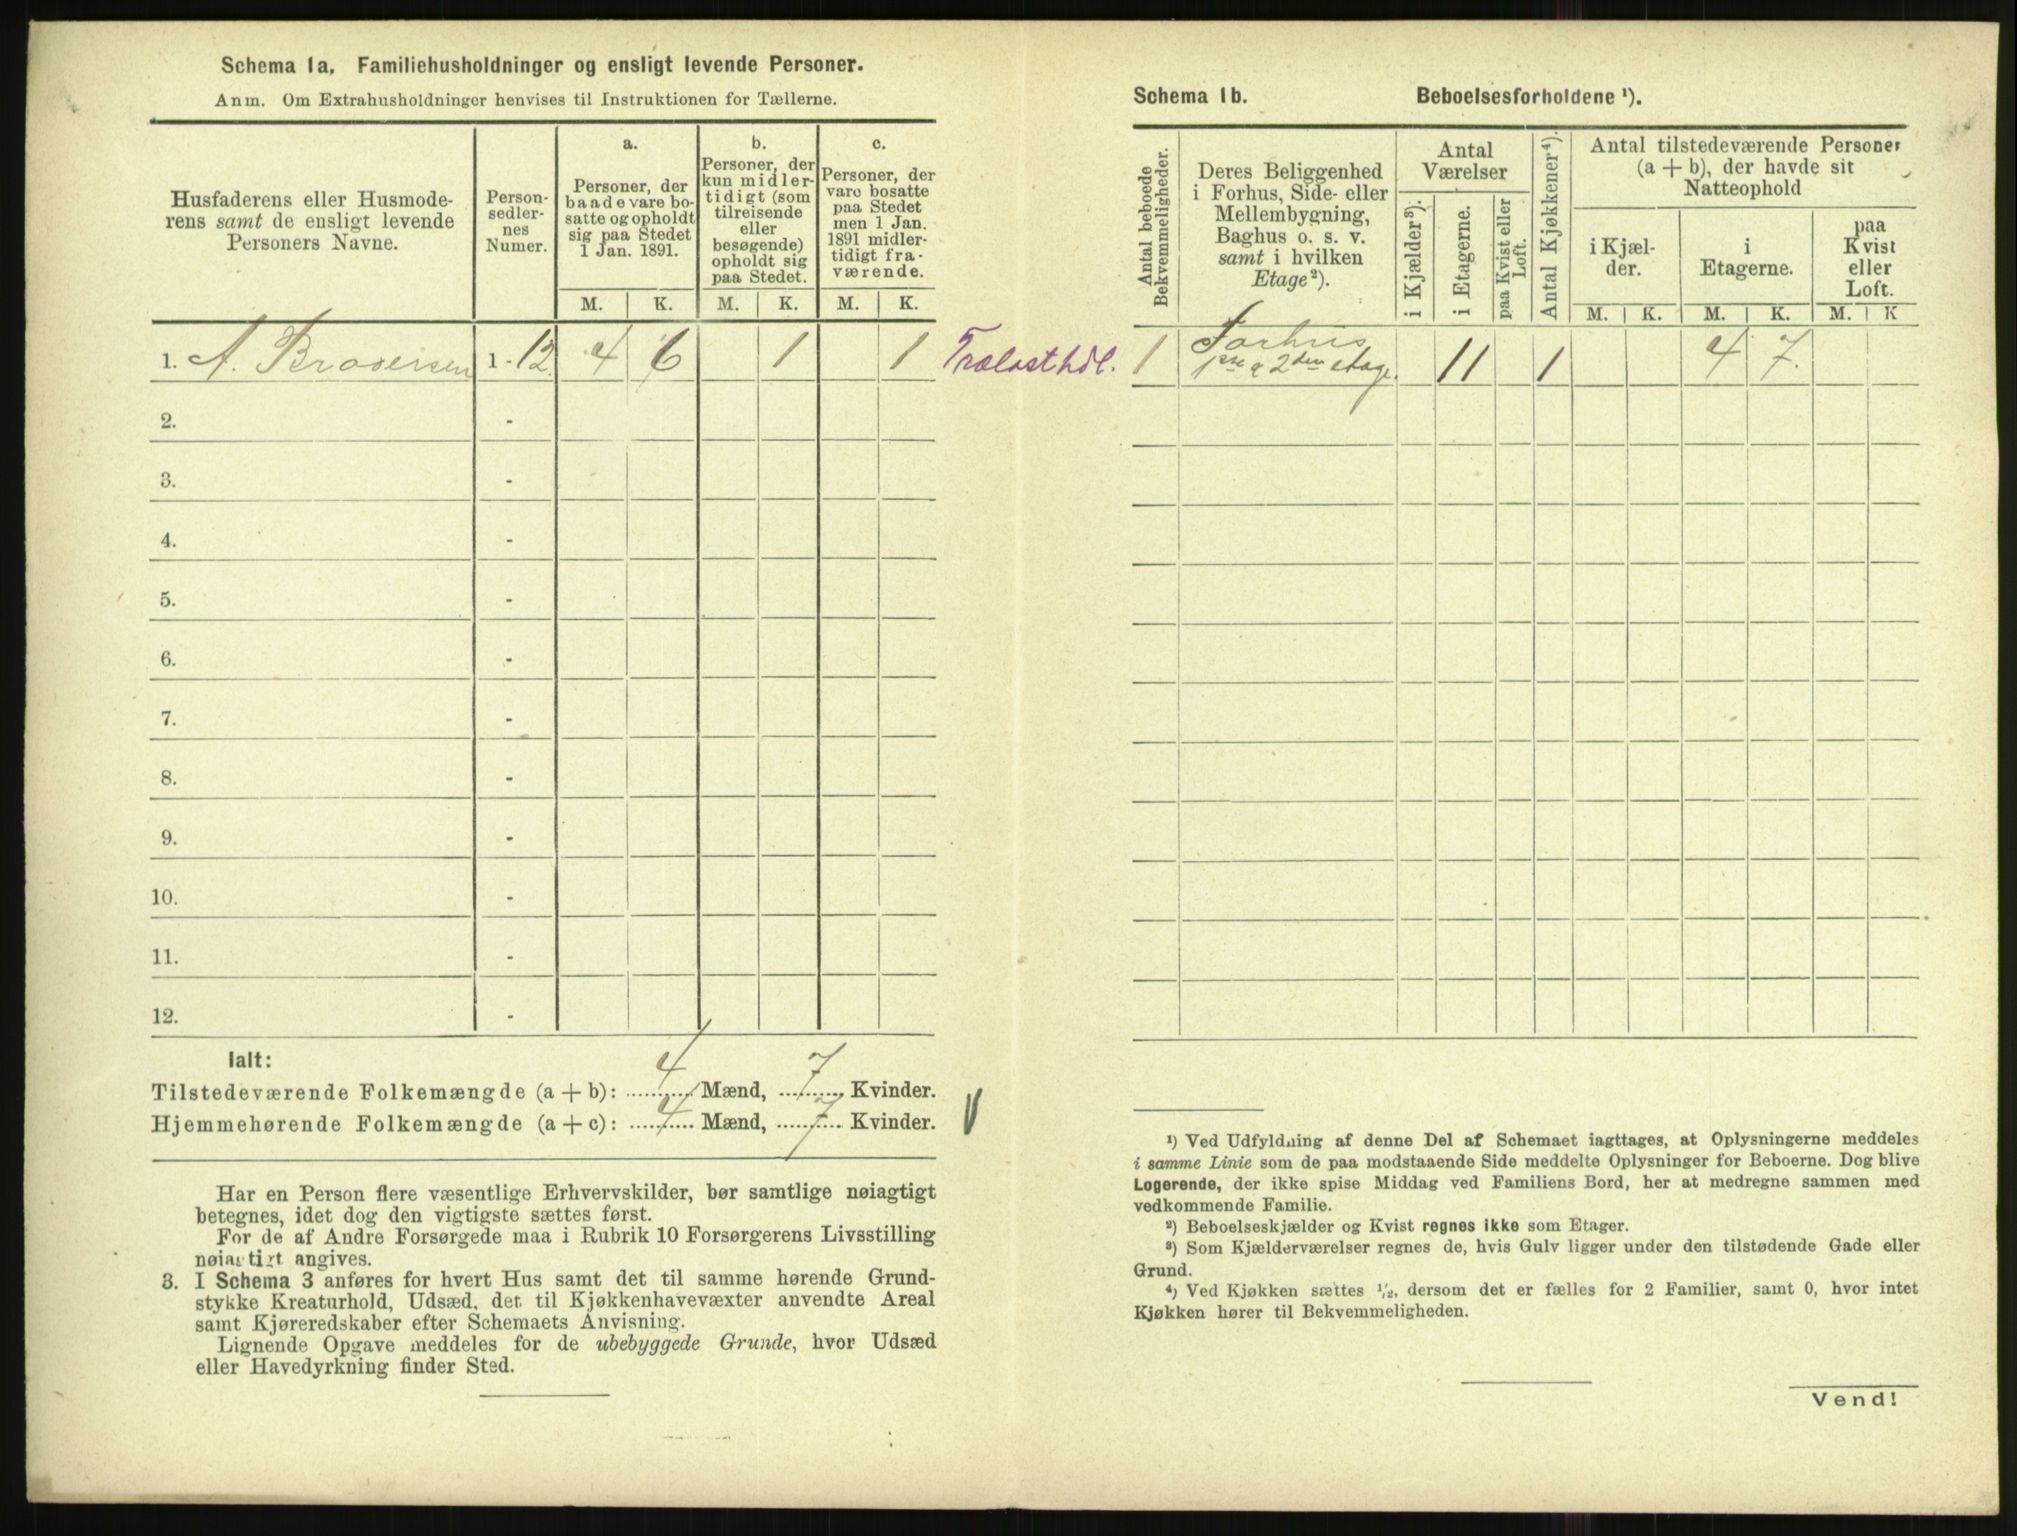 Schema 1a. Familiehusholdninger og ensligt levende Personer.
Anm. Om Extrahusholdninger henvises til Instruktionen for Tællerne.
Husfaderens eller Husmode-
rens samt de ensligt levende
Personers Navne.
Person-
sedler-
nes
Numer.
a.
Personer, der
baade vare bo-
satte og opholdt
sig paa Stedet
1 Jan. 1891.
b.
Personer, der
kun midler-
tidigt (som
tilreisende
eller
besøgende)
opholdt sig
paa Stedet.
c.
Personer, der
vare bosatte
paa Stedet
men 1 Jan.
1891 midler-
tidigt fra-
værende.
M. K. M. K. M. K.
1. A. Brodersen 1 - 12 4 6 1 1 Trælasthdl.
2. -
3. -
4. -
5. -
6. -
7. -
8. -
9. -
10. -
11. -
12. -
Ialt:
Tilstedeværende Folkemængde (a + b): 4 Mænd, 7 Kvinder.
Hjemmehørende Folkemængde (a + c): 4 Mænd, 7 Kvinder.
Har en Person flere væsentlige Erhvervskilder, bør samtlige nøiagtigt
betegnes, idet dog den vigtigste sættes først.
For de af Andre Forsørgede maa i Rubrik 10 Forsørgerens Livsstilling
nøiagtigt angives.
3. I Schema 3 anføres for hvert Hus samt det til samme hørende Grund-
stykke Kreaturhold, Udsæd, det til Kjøkkenhavevæxter anvendte Areal
samt Kjøreredskaber efter Schemaets Anvisning.
Lignende Opgave meddeles for de ubebyggede Grunde, hvor Udsæd
eller Havedyrkning finder Sted.
Schema 1b. Beboelsesforholdene ¹).
Antal beboede
Bekvemmeligheder.
Deres Beliggenhed
i Forhus, Side- eller
Mellembygning,
Baghus o. s. v.
samt i hvilken
Etage²).
Antal
Værelser
i Kjælder³).
i Etagerne.
paa Kvist eller
Loft.
Antal Kjøkkener⁴).
Antal tilstedeværende Personer
(a + b), der havde sit
Natteophold
i Kjæl-
der.
i
Etagerne.
paa
Kvist
eller
Loft.
M. K. M. K. M. K
1 Forhus
1ste & 2den etage. 11 1 4 7.
¹) Ved Udfyldning af denne Del af Schemaet iagttages, at Oplysningerne meddeles
i samme Linie som de paa modstaaende Side meddelte Oplysninger for Beboerne. Dog blive
Logerende, der ikke spise Middag ved Familiens Bord, her at medregne sammen med
vedkommende Familie.
²) Beboelseskjælder og Kvist regnes ikke som Etager.
³) Som Kjælderværelser regnes de, hvis Gulv ligger under den tilstødende Gade eller
Grund.
⁴) Ved Kjøkken sættes ½, dersom det er fælles for 2 Familier, samt 0, hvor intet
Kjøkken hører til Bekvemmeligheden.
Vend!